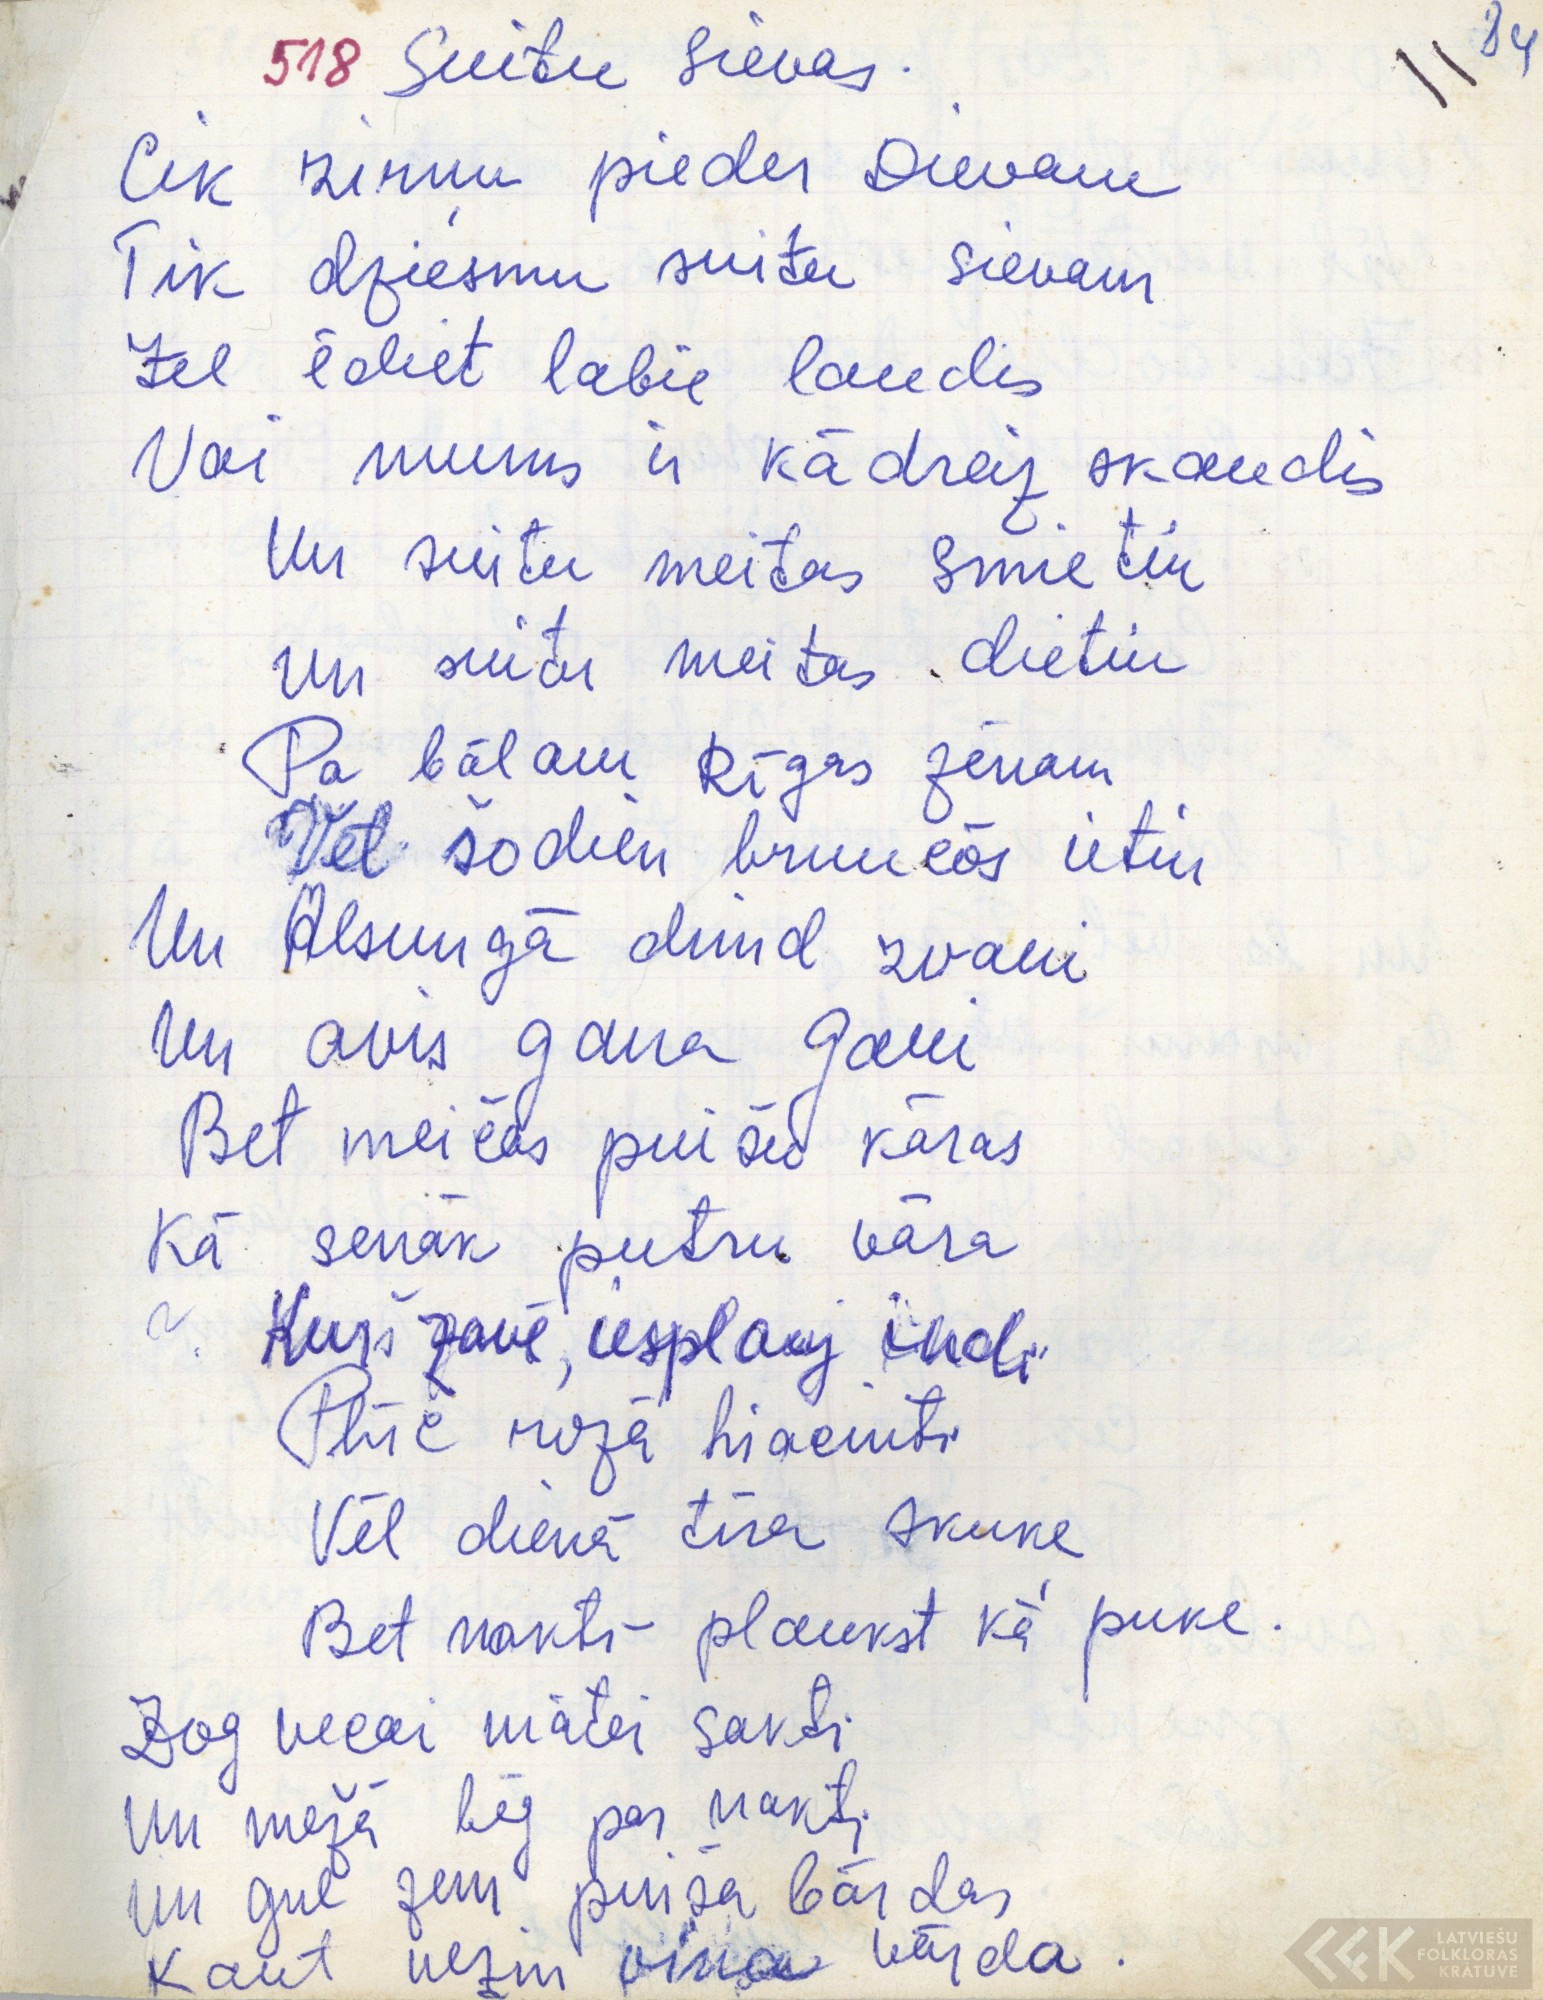 84
11
518 Suitu sievas.
Cik zirņu pieder Dievam
Tik dziesmu suitu sievam
Zel ēdiet labie laudis
Vai mums ir kādreiz skaudis
Un suitu meitas smietin
Un suitu meitas dietin
Pa bālam Rīgas zēnam
Vēl šodien brunčōs ietin
Un Alsungā dimd zvani
Un avis gana gani
Bet meičas puišu kāras
Kā senāk putru vāra
Kurš zavē, iesplauj indi
Plūc rozā hiacinti
Vēl dienā tīra skuke
Bet naktī plaukst kā puke.
Zog vecai mātei sakti
Un mežā bēg par nakti
Un gul zem puiša bārdas
Kaut nezin viņa vārda.
LATVIEŠU
FOLKLORAS
KRĀTUVE